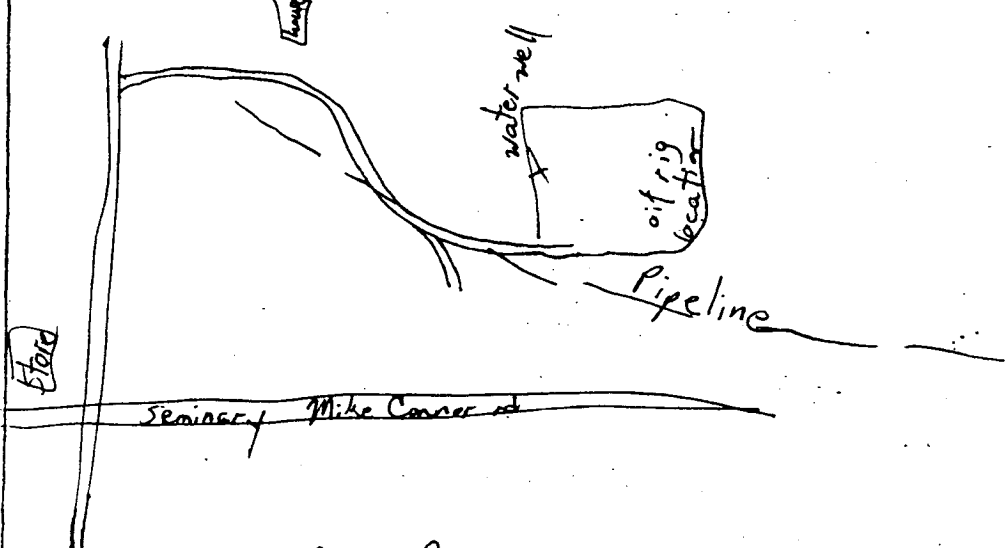 water well
oil rig
location
Pipeline
Store
Seminary Mike Conner rd